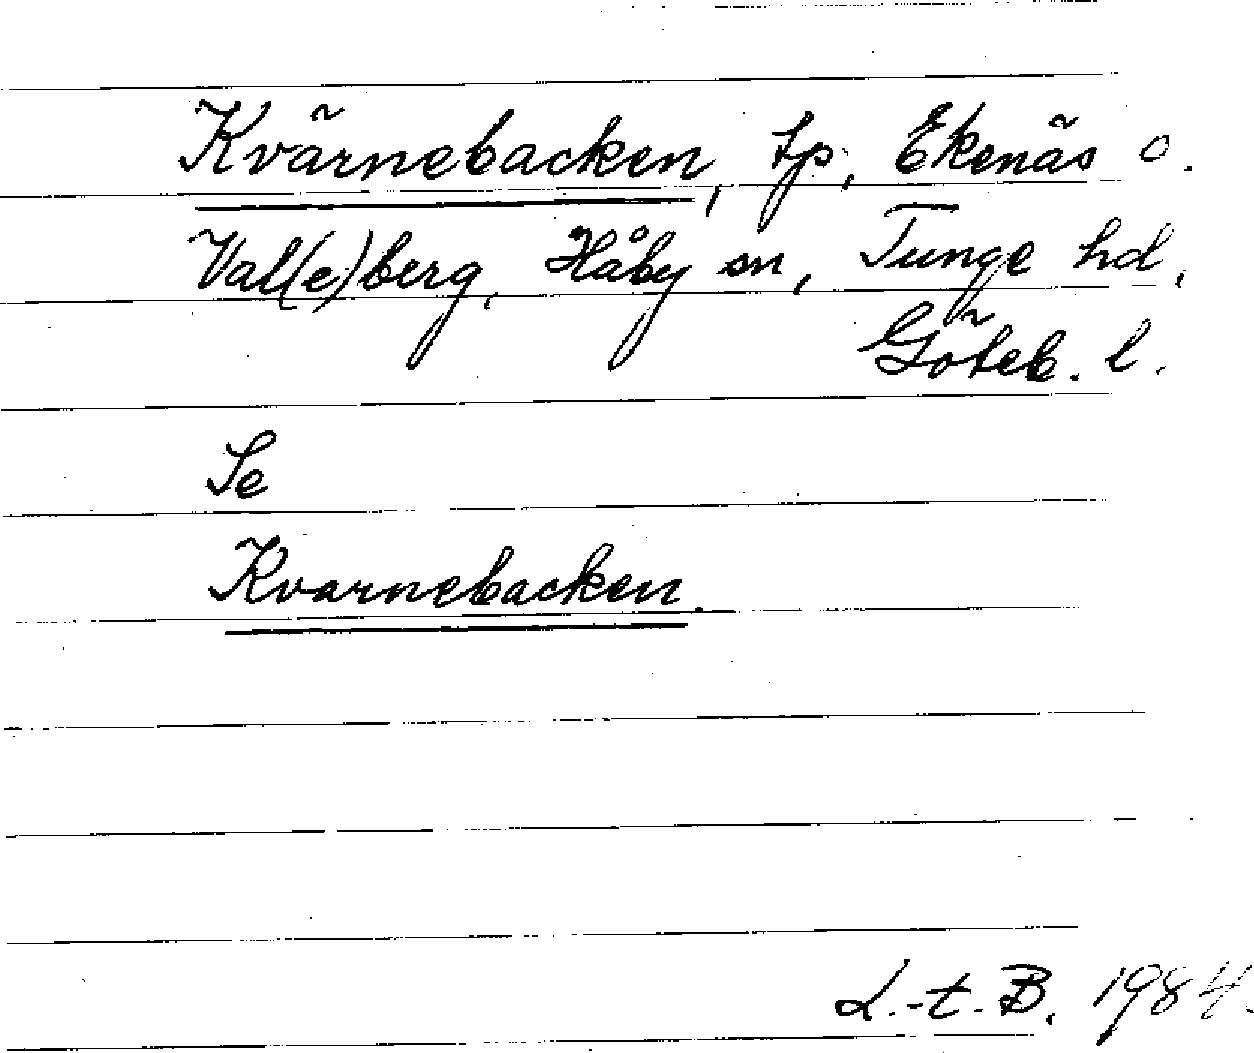 Kvärnebacken, tp, Ekenäs o.
Val(e)berg, Håby sn, Tunge hd,
Göteb. l.
Se
Kvarnebacken.
L.-t. B. 1984.